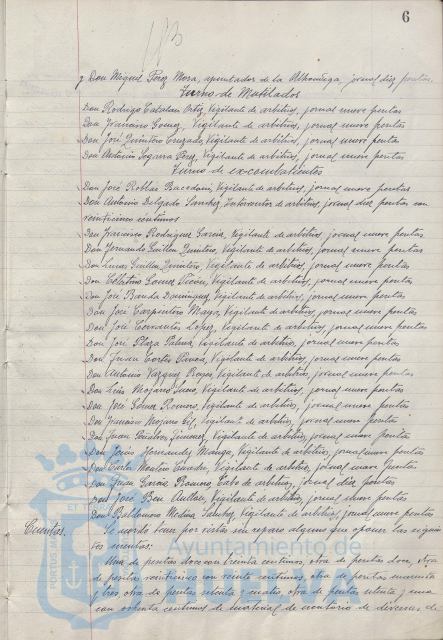 6
y Don Miguel Perez Mora, apuntador de la Alhondiga, jornal diez pesetas.
Turno de Mutilados
Don Rodrigo Catalan Ortiz, Vigilante de arbitrios, jornal nueve pesetas
Don Francisco Gomez, Vigilante de arbitrios, jornal nueve pesetas
Don José Quintero Cruzado, Vigilante de arbitrios, jornal nueve pesetas
Don Antonio Segarra Perez, Vigilante de arbitrios, jornal nueve pesetas
Turno de ex-combatientes
Don José Robles Racedoni, Vigilante de arbitrios, jornal nueve pesetas
Don Antonio Delgado Sanchez, Interventor de arbitrios, jornal diez pesetas con
veinticinco centimos
Don Francisco Rodriguez Garcia, Vigilante de arbitrios, jornal nueve pesetas
Don Fernando Guillen Quintero, Vigilante de arbitrios, jornal nueve pesetas
Don Lucas Guillen Quintero, Vigilante de arbitrios, jornal nueve pesetas
Don Gomez, Vigilante de arbitrios, jornal nueve pesetas
Don José Banda Dominguez, Vigilante de arbitrios, jornal nueve pesetas
Don José Carpintero Mayo, Vigilante de arbitrios, jornal nueve pesetas
Don José Cervantes Lopez, Vigilante de arbitrios, jornal nueve pesetas
Don José Plaza Palma, Vigilante de arbitrios, jornal nueve pesetas
Don Juan Cortés, Vigilante de arbitrios, jornal nueve pesetas
Don Antonio Vazquez Reyes, Vigilante de arbitrios, jornal nueve pesetas
Don Luis Mojarro, Vigilante de arbitrios, jornal nueve pesetas
Don José Gomez Romero, Vigilante de arbitrios, jornal nueve pesetas
Don Francisco Mojarro Gil, Vigilante de arbitrios, jornal nueve pesetas
Don Juan Gimenez, Vigilante de arbitrios, jornal nueve pesetas
Don Jesús Hernandez, Vigilante de arbitrios, jornal nueve pesetas
Don Carlos, Vigilante de arbitrios, jornal nueve pesetas
Don Juan Garcia Romero, Cabo de arbitrios, jornal diez pesetas
Don José, Vigilante de arbitrios, jornal nueve pesetas
Don Baldomero Medina Sanchez, Vigilante de arbitrios, jornal nueve pesetas
Cuentas. Se acordó por vistas sin reparo alguno que oponer las siguien-
tes cuentas:
Ayuntamiento de
Una de pesetas doce con treinta centimos, otra de pesetas doce, otra
de pesetas veinticinco con veinte centimos, otra de pesetas cuarenta
y tres, otra de pesetas setenta y cuatro, otra de pesetas setenta y una
con ochenta centimos de material de